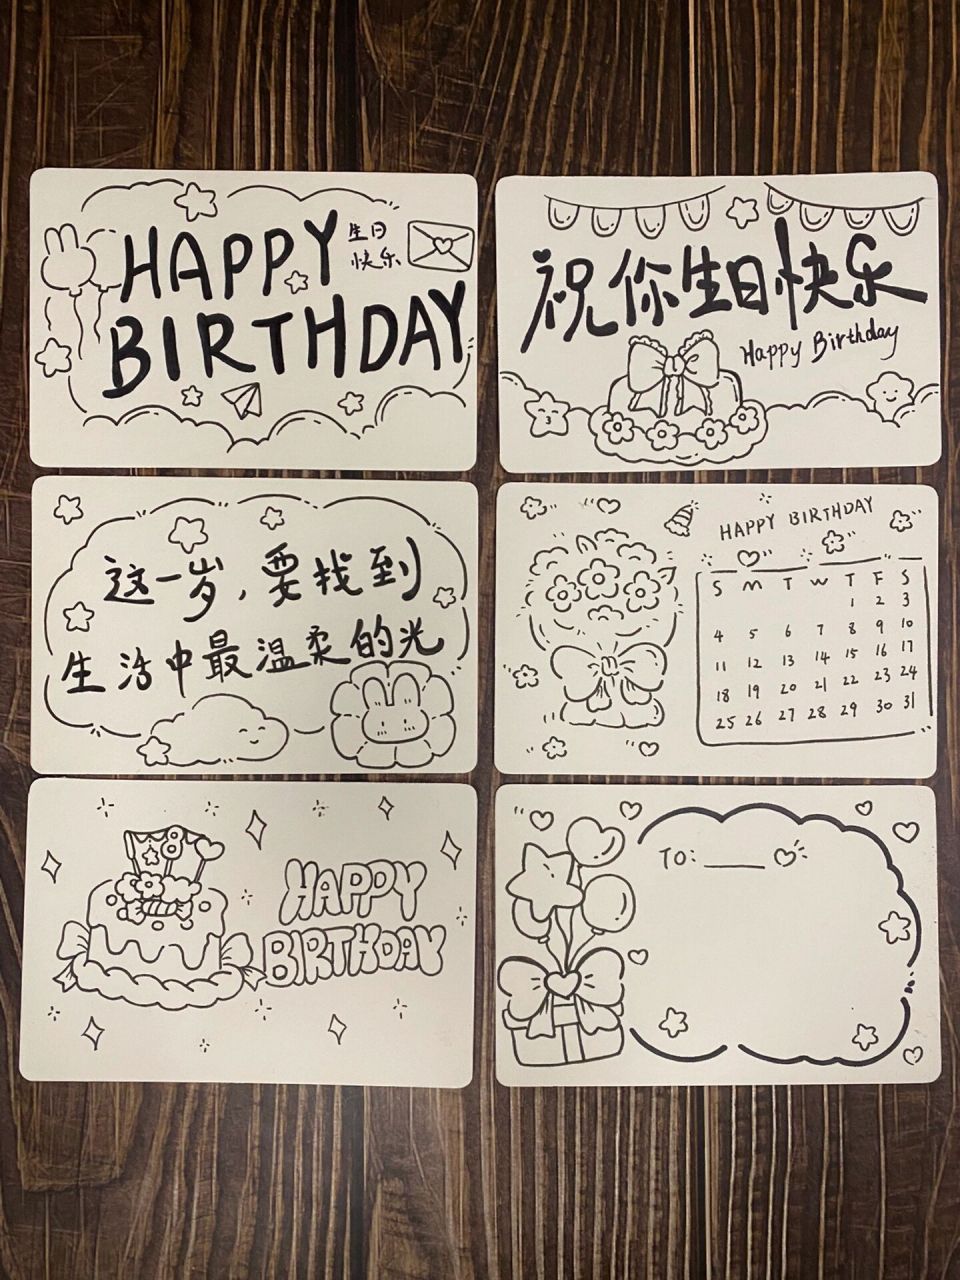 HAPPY
生日
快乐
BIRTHDAY
祝你生日快乐
Happy Birthday
这一岁，要找到
生活中最温柔的光
HAPPY BIRTHDAY
S M T W T F S
1 2 3
4 5 6 7 8 9 10
11 12 13 14 15 16 17
18 19 20 21 22 23 24
25 26 27 28 29 30 31
8
HAPPY
BIRTHDAY
TO: